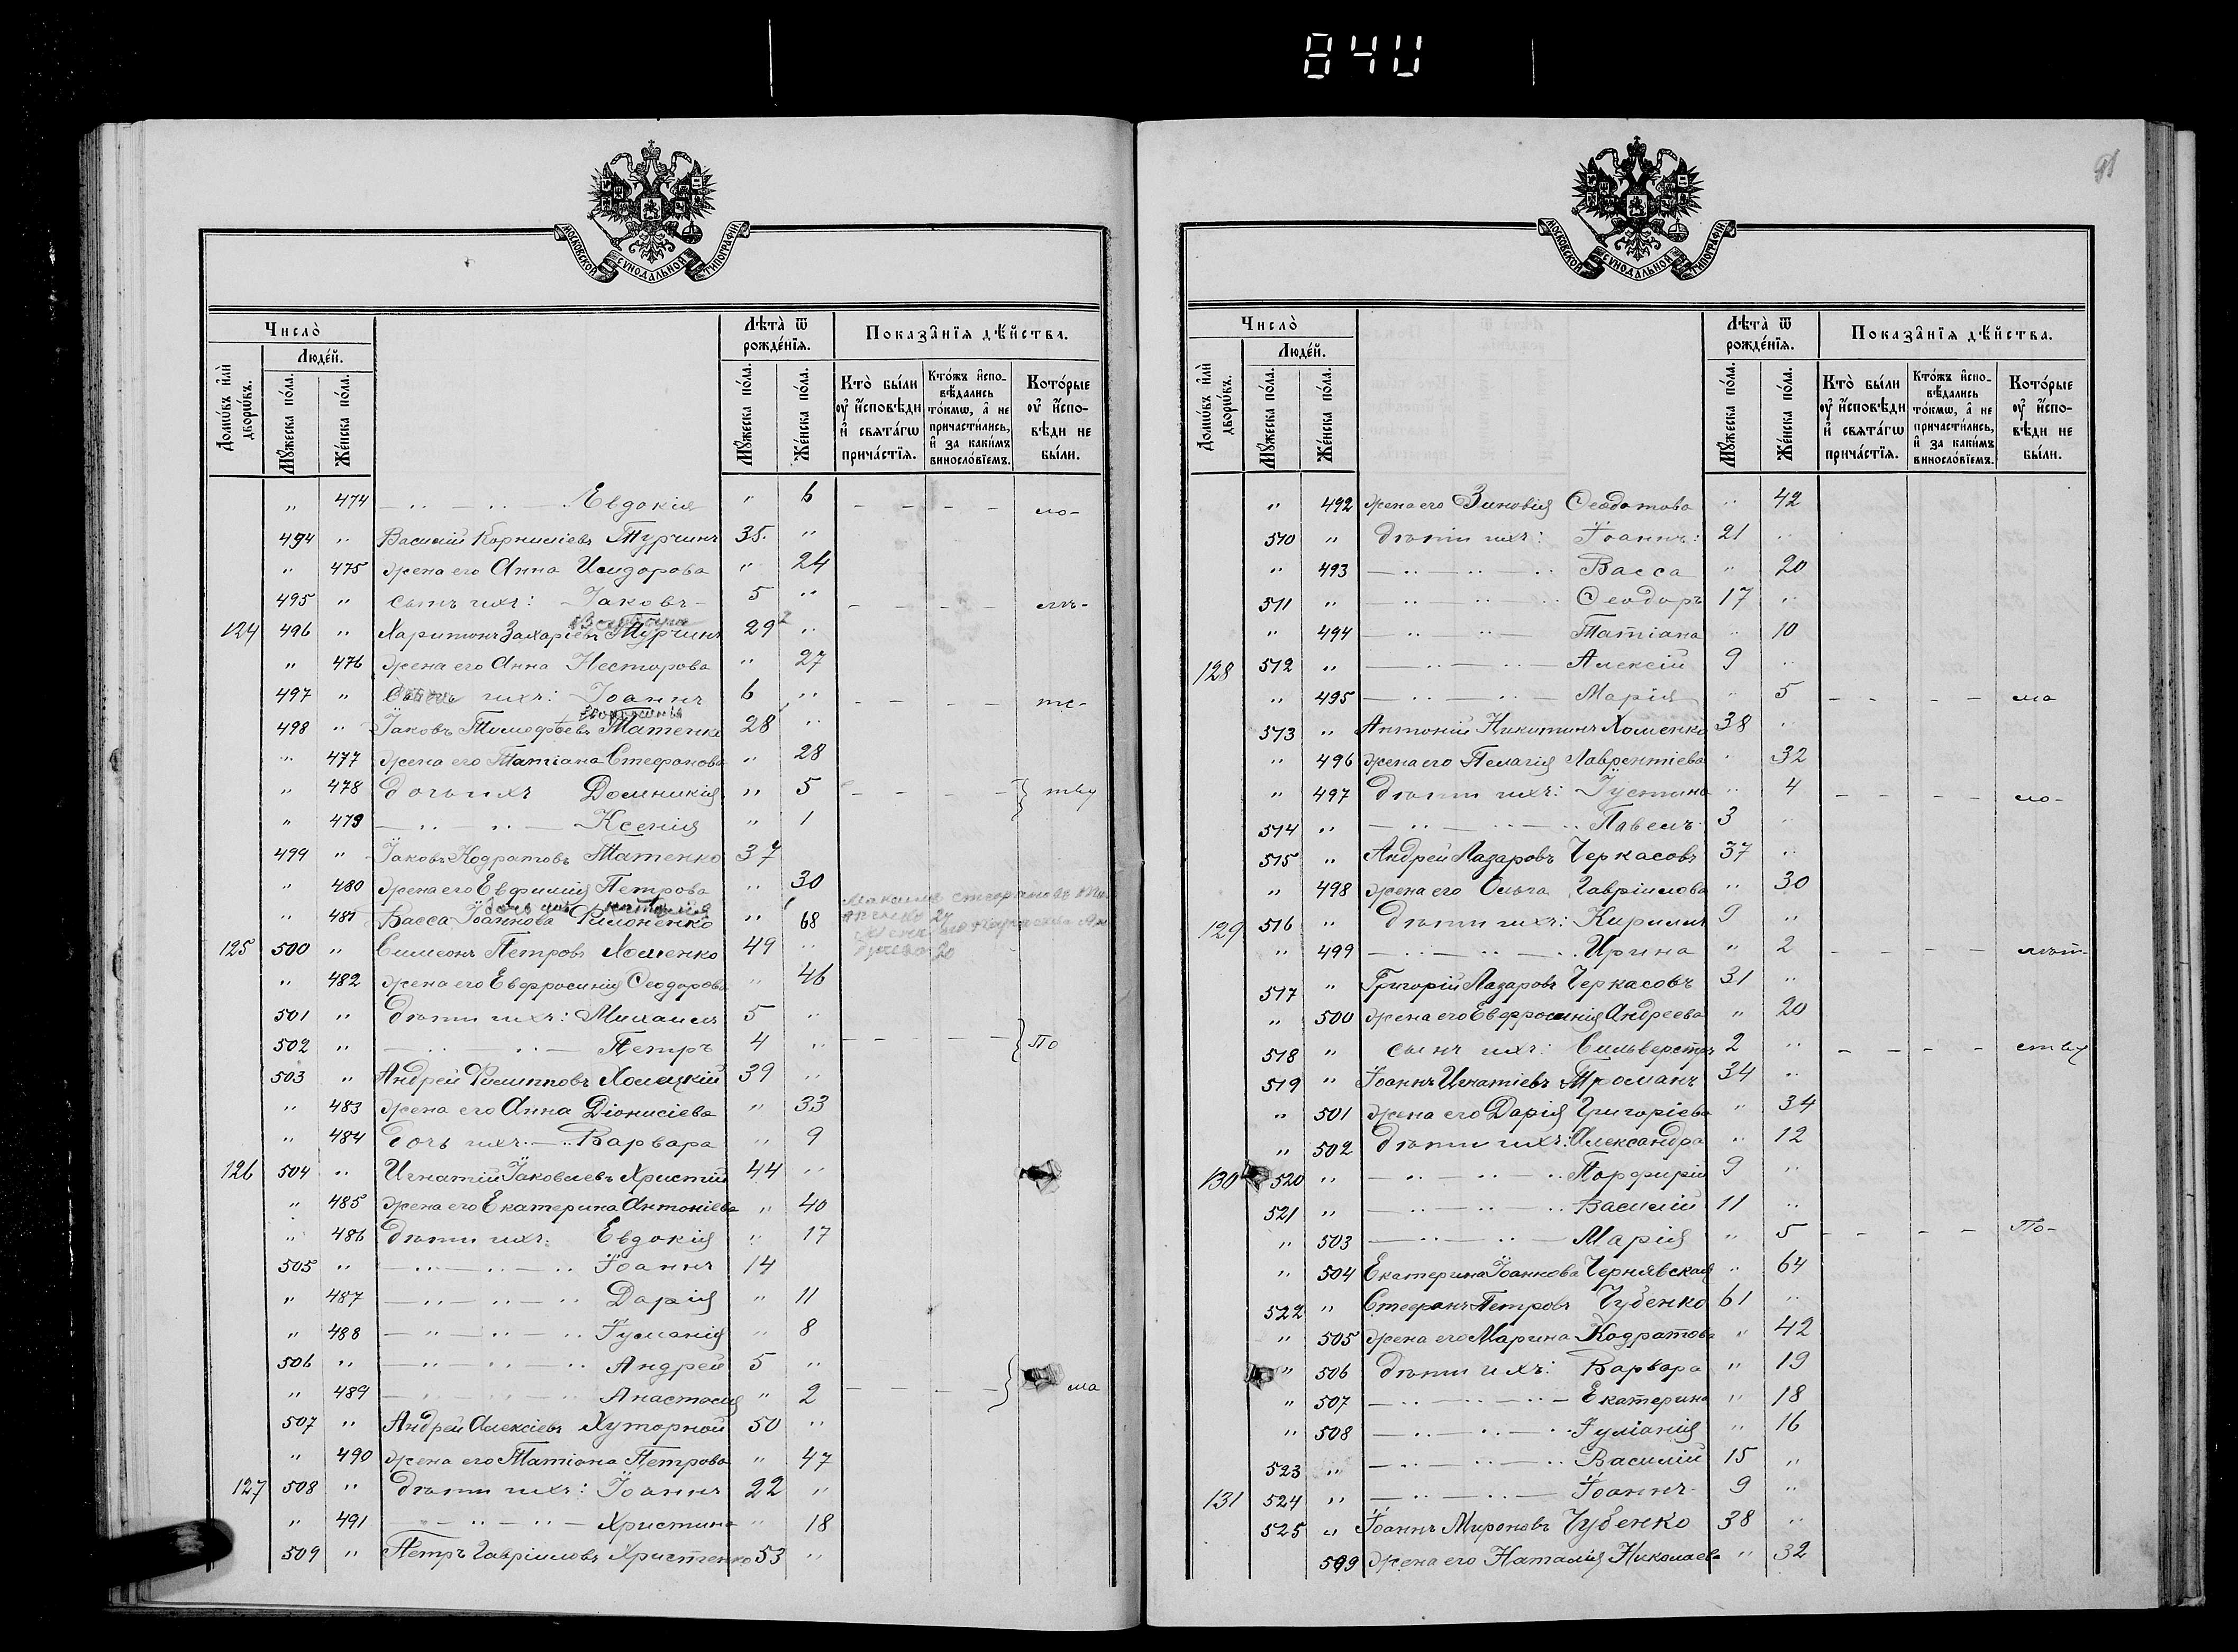 840
91
МОСКОВСКОЙ СѴНОДАЛЬНОЙ ТИПОГРАФІИ
Число̀
Людéй.
Домѡ́въ и҆лѝ дворѡ́въ.
Мꙋ́жеска по́ла.
Же́нска по́ла.
Лѣта̀ ѿ рожде́нїѧ.
Мꙋ́жеска по́ла.
Же́нска по́ла.
Показа̑нїѧ дѣ́йства.
Кто̀ бы́ли оу҆ и҆́сповѣди и҆ свѧта́гѡ прича́стїѧ.
Кто́жъ и҆спо-вѣ́дались то́кмѡ, а҆ не причасти́лись, и҆ за каки́мъ винослóвїемъ.
Кото́рые оу҆ и҆́спо-вѣди не бы́ли.
" 474 — " — " — Евдокія " 6 - - - - ло-
494 " Василій Корниліевъ Турчинъ 35. "
" 475 жена его Анна Исидорова " 24
495 " сынъ ихъ: Іаковъ - 5 " - - - - лѣ-
124 496 " Харитонъ Захаріевъ Турчинъ 29 "
" 476 жена его Анна Несторова " 27
497 " ихъ: Іоаннъ 6 " - - - - те-
498 " Іаковъ Тимофѣевъ Матенко 28 "
" 477 жена его Татіана Стефанова " 28
" 478 дочь ихъ Домникія " 5 - - - - } тву
" 479 — " — " — Ксенія " 1
499 " Іаковъ Кодратовъ Матенко 37
" 480 жена его Евфимія Петрова " 30
" 481 Васса Іоаннова Филоненко " 68
125 500 " Симеонъ Петровъ Хоменко 49 "
" 482 жена его Евфросинія Ѳеодорова " 46
501 " дѣти ихъ: Михаилъ 5 "
502 " — " — " — Петръ 4 " - - - - } По
503 " Андрей Филипповъ Хомицкій 39 "
" 483 жена его Анна Діонисіева " 33
" 484 дочь ихъ — " Варвара " 9
126 504 " Игнатій Іаковлевъ Христій 44 "
" 485 жена его Екатерина Антоніева " 40
" 486 дѣти ихъ: Евдокія " 17
505 " — " — " — " Іоаннъ 14
" 487 — " — " — " Дарія " 11
" 488 — " — " — " Іуліанія " 8
506 " — " — " — " Андрей 5 "
" 489 — " — " — Анастасія " 2 - - - - } ма
507 " Андрей Алексіевъ Хуторной 50 "
" 490 жена его Татіана Петрова " 47
127 508 " дѣти ихъ: Іоаннъ 22 "
" 491 — " — " — Христина " 18
509 " Петръ Гавріиловъ Христенко 53 "
МОСКОВСКОЙ СѴНОДАЛЬНОЙ ТИПОГРАФІИ
Число̀
Людéй.
Домѡ́въ и҆лѝ дворѡ́въ.
Мꙋ́жеска по́ла.
Же́нска по́ла.
Лѣта̀ ѿ рожде́нїѧ.
Мꙋ́жеска по́ла.
Же́нска по́ла.
Показа̑нїѧ дѣ́йства.
Кто̀ бы́ли оу҆ и҆́сповѣди и҆ свѧта́гѡ прича́стїѧ.
Кто́жъ и҆спо-вѣ́дались то́кмѡ, а҆ не причасти́лись, и҆ за каки́мъ винослóвїемъ.
Кото́рые оу҆ и҆́спо-вѣди не бы́ли.
" 492 жена его Зиновія Ѳеодотова " 42
510 " дѣти ихъ: Іоаннъ: 21 "
" 493 — " — " — " Васса " 20
511 " — " — " — " Ѳеодоръ 17 "
" 494 — " — " — Татіана " 10
128 512 " — " — " — Алексій 9 "
" 495 — " — " — Марія " 5 - - - - ма
513 " Антоній Никитинъ Хоменко 38 "
" 496 жена его Пелагія Лаврентіева " 32
" 497 дѣти ихъ: Іустина " 4 - - - - ло-
514 " — " — " — " Павелъ 3 "
515 " Андрей Лазаровъ Черкасовъ 37 "
" 498 жена его Ольга Гавріилова " 30
129 516 " дѣти ихъ: Кириллъ 9 "
" 499 — " — " — " Ирина " 2 - - - - лѣт-
517 " Григорій Лазаровъ Черкасовъ 31 "
" 500 жена его Евфросинія Андреева " 20
518 " сынъ ихъ: Сильверстръ 2 " - - - - ству
519 " Іоаннъ Игнатіевъ Троманъ 34 "
" 501 жена его Дарія Григоріева " 34
" 502 дѣти ихъ: Александра " 12
130 520 " — " — " — " Порфирій 9 "
521 " — " — " — " Василій 11 "
" 503 — " — " — Марія " 5 - - - - По-
" 504 Екатерина Іоаннова Чернявская " 64
522 " Стефанъ Петровъ Чубенко 61 "
" 505 жена его Марина Кодратова " 42
" 506 дѣти ихъ: Варвара " 19
" 507 — " — " — Екатерина " 18
" 508 — " — " — " Іуліанія " 16
523 " — " — " — " Василій 15 "
131 524 " — " — " — Іоаннъ 9 "
525 " Іоаннъ Мироновъ Чубенко 38 "
509 жена его Наталія Николаева " 32